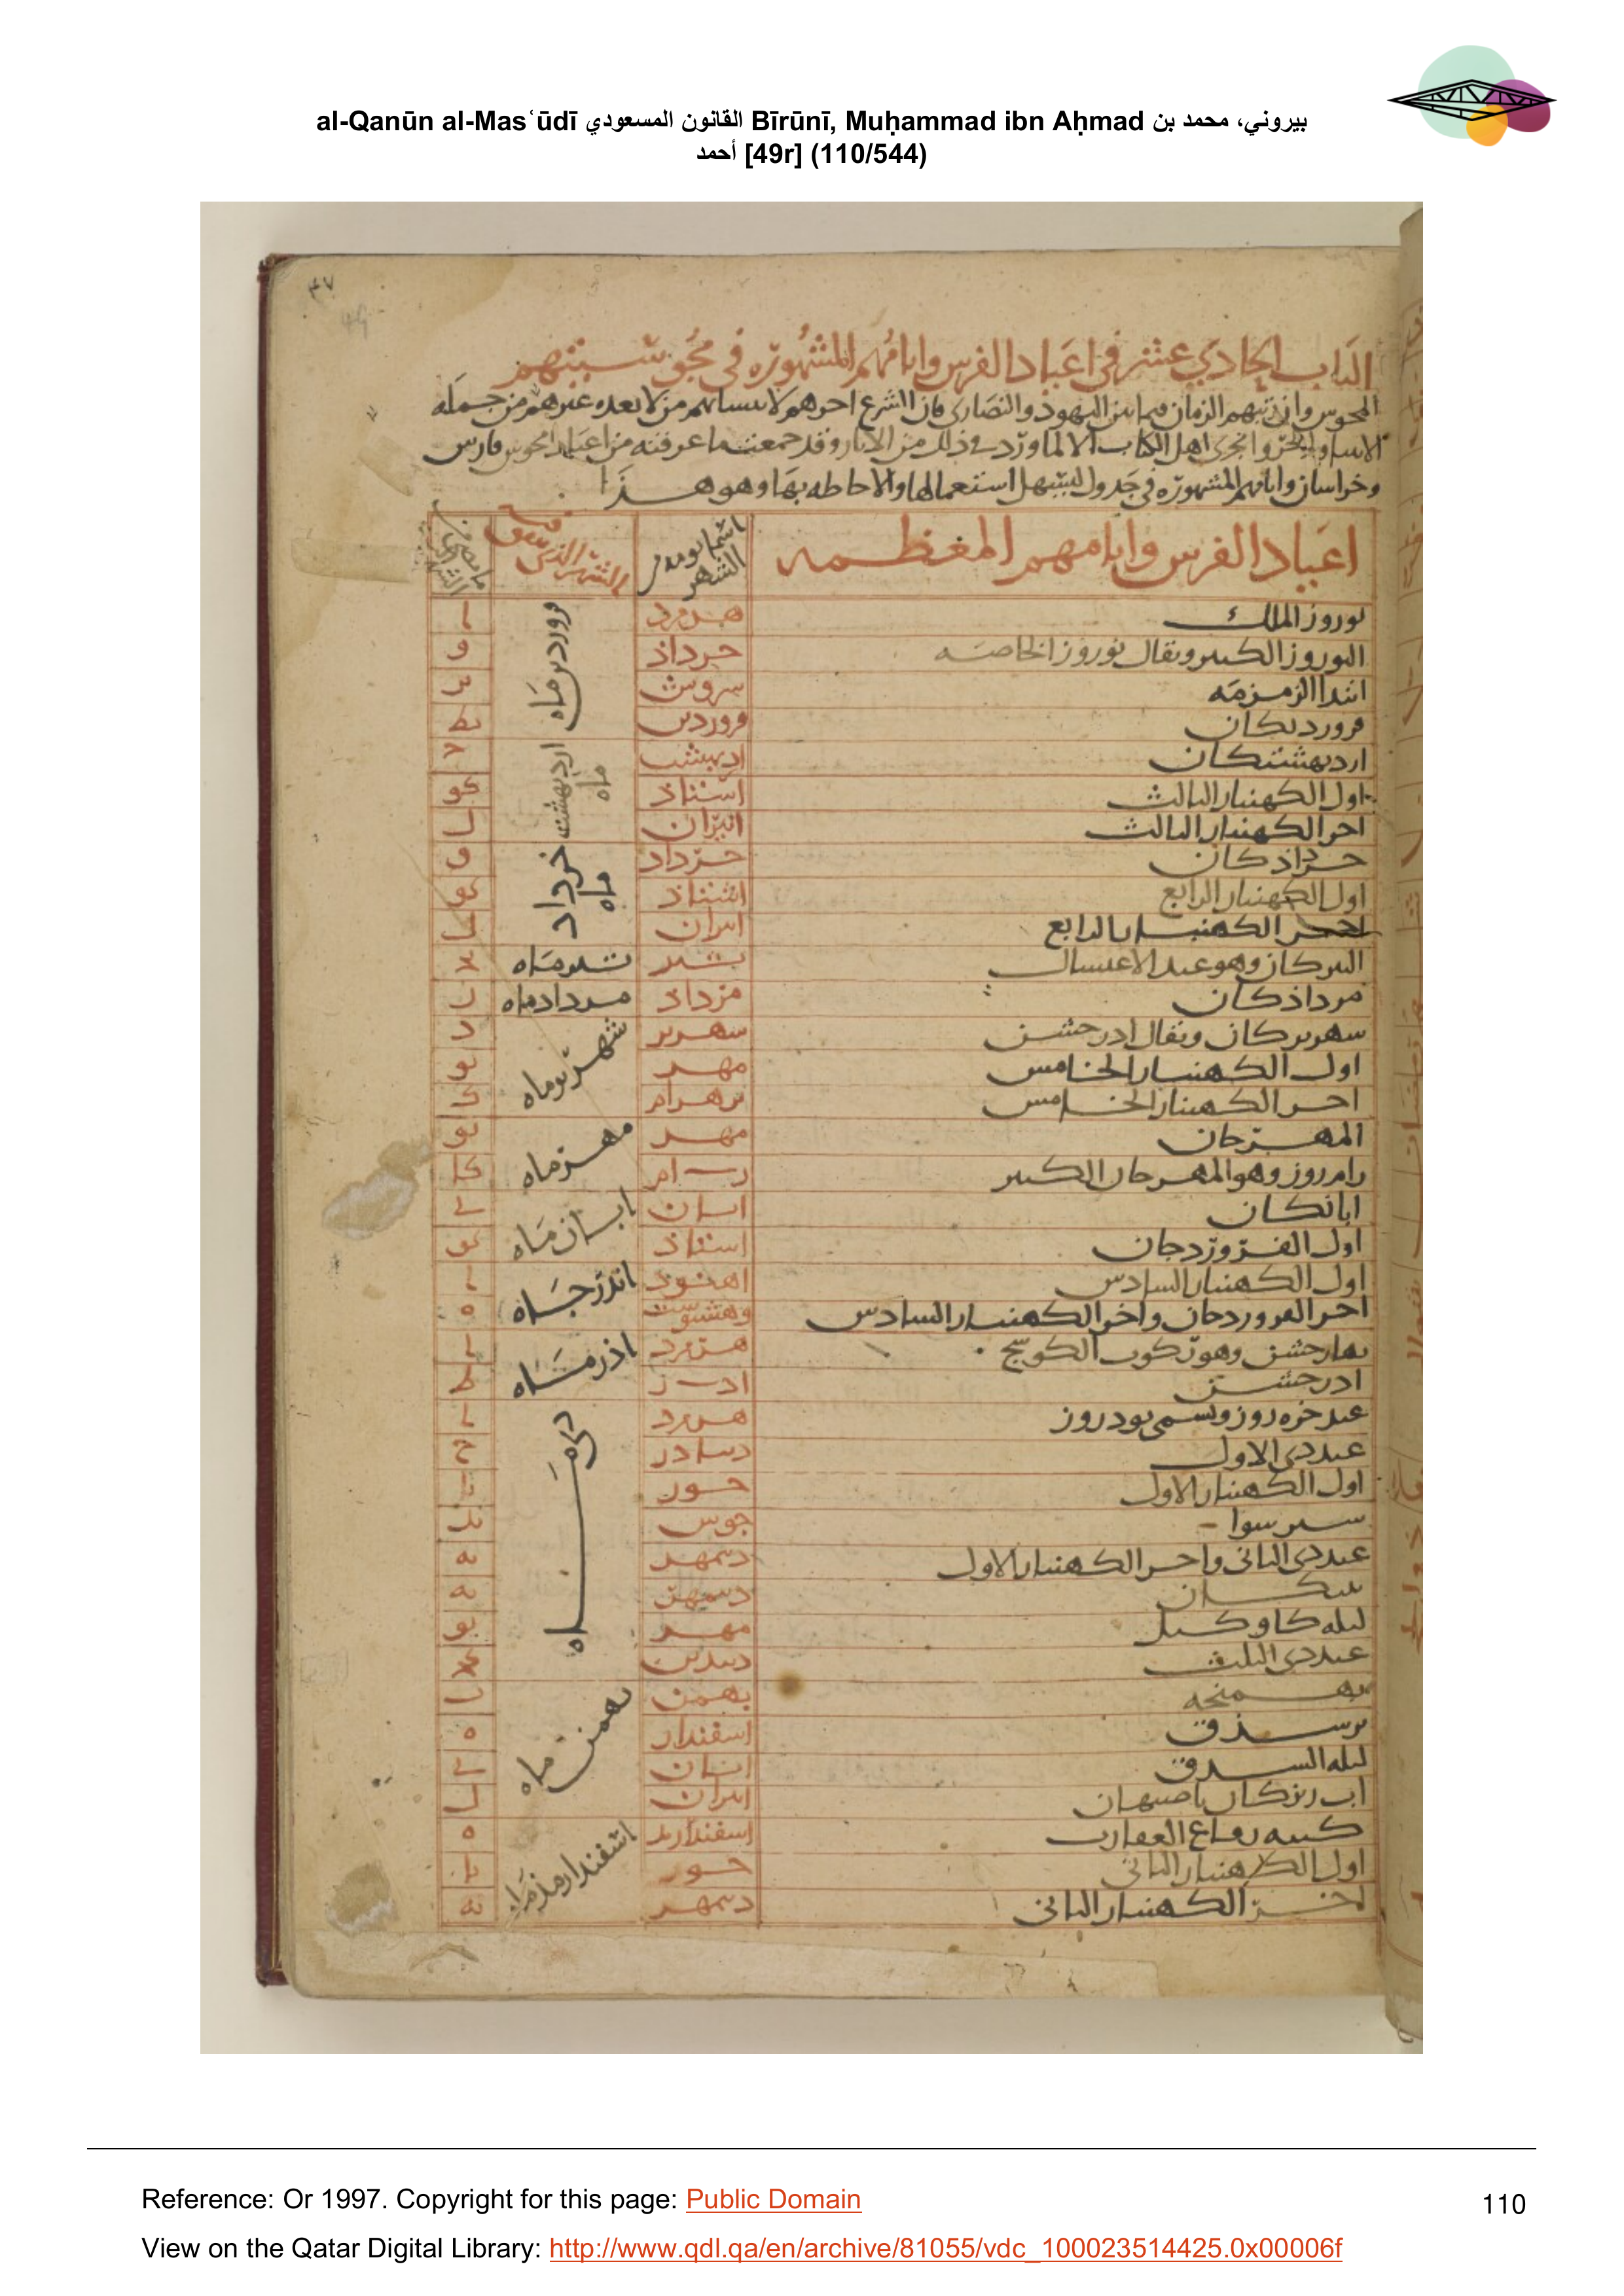 al-Qanūn al-Masʿūdī القانون المسعودي Bīrūnī, Muḥammad ibn Aḥmad بيروني، محمد بن
أحمد [49r] (110/544)
٤٧
49
الباب الحادي عشر في اعياد الفرس وايامهم المشهوره في مجوسيتهم
المجوس وان تبهم الزمان فيما بين اليهود والنصارى فان الشرع احرهم لا من لا بعده غيرهم من جمله
اهل الكتاب الا لما ورد في ذلك من الاثار وقد جمعت ما عرفته من اعياد مجوس فارس
وخراسان وايامهم المشهوره في جدول ليسهل استعمالها والاحاطه بها وهو هذا
اعياد الفرس وايامهم المعظمه اسما يوم من الشهر الشهر الفرس ما مضى من الشهر
نوروز الملك هرمزد فروردين ماه ا
النوروز الكبير ويقال نوروز الخاصه خرداذ و
ابتدا الزمزمه سروش يز
فروردنكان فروردين يط
ارديهشتكان ارديهشت ارديهشت ماه ج
اول الكهنبار الثالث اشتاذ كو
اخر الكهنبار الثالث انيران ل
خرداذكان خرداد خرداد ماه و
اول الكهنبار الرابع اشتاذ كو
اخر الكهنبار الرابع انيران ل
التيركان وهو عيد الاغتسال تير تير ماه يج
مرداذكان مرداد مرداد ماه ز
شهريركان ويقال اذرجشن شهرير شهريور ماه د
اول الكهنبار الخامس مهر يو
اخر الكهنبار الخامس بهرام ك
المهرجان مهر مهر ماه يو
رام روز وهو المهرجان الكبير رام كا
ابانكان ابان ابان ماه ى
اول الفروردجان اشتاذ كو
اول الكهنبار السادس اهنود اندرجاه ا
اخر الفروردجان واخر الكهنبار السادس وهشتوشت ه
بهارجشن وهو ركوب الكوسج هرمزد اذر ماه ا
اذرجشن اذر ط
عيد خره روز ويسمى نود روز هرمزد دى ماه ا
عيد دى الاول دباذر ح
اول الكهنبار الاول خور يا
سيرسوا جوش يد
عيد دى الثانى واخر الكهنبار الاول ديمهر يه
ديمهر يه
ليله كاوكيل مهر يو
عيد دى الثالث ديبدين كج
بهمنجه بهمن بهمن ماه ب
برسذق اسفندار ه
ليله السذق ابان ى
اب ريزكان باصبهان انيران ل
كتبه رقاع العقارب اسفندارمذ اسفندارمذ ماه ه
اول الكهنبار الثانى خور يا
اخر الكهنبار الثانى ديمهر يه
Reference: Or 1997. Copyright for this page: Public Domain
110
View on the Qatar Digital Library: http://www.qdl.qa/en/archive/81055/vdc_100023514425.0x00006f